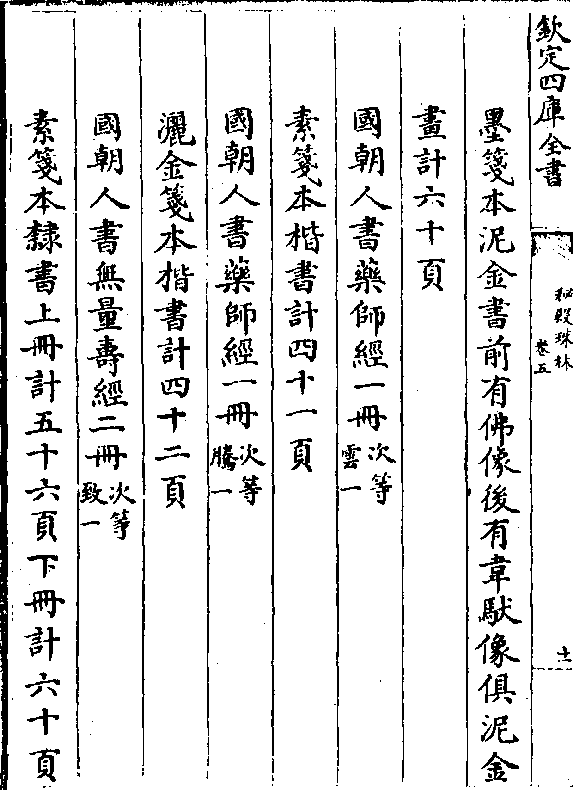 欽定四庫全書
秘殿珠林
卷五
十一
墨箋本泥金書前有佛像後有韋馱像俱泥金
畫計六十頁
國朝人書藥師經一冊次等雲一
素箋本楷書計四十一頁
國朝人書藥師經一冊次等騰一
灑金箋本楷書計四十二頁
國朝人書無量壽經二冊次等致一
素箋本隸書上冊計五十六頁下冊計六十頁